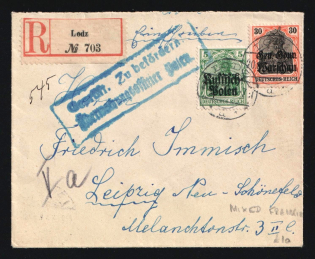 R
Lodz
№ 703
Einschreiben
545
Geprüft. Zu befördern.
5 5
Russisch-
Polen
30 30
Gen.-Gouv.
Warschau
DEUTSCHES REICH
Herrn
Friedrich Immisch
Va
Leipzig Neu-Schönefeld
MIXED FRANKING
Melanchtonstr. 3 II l.